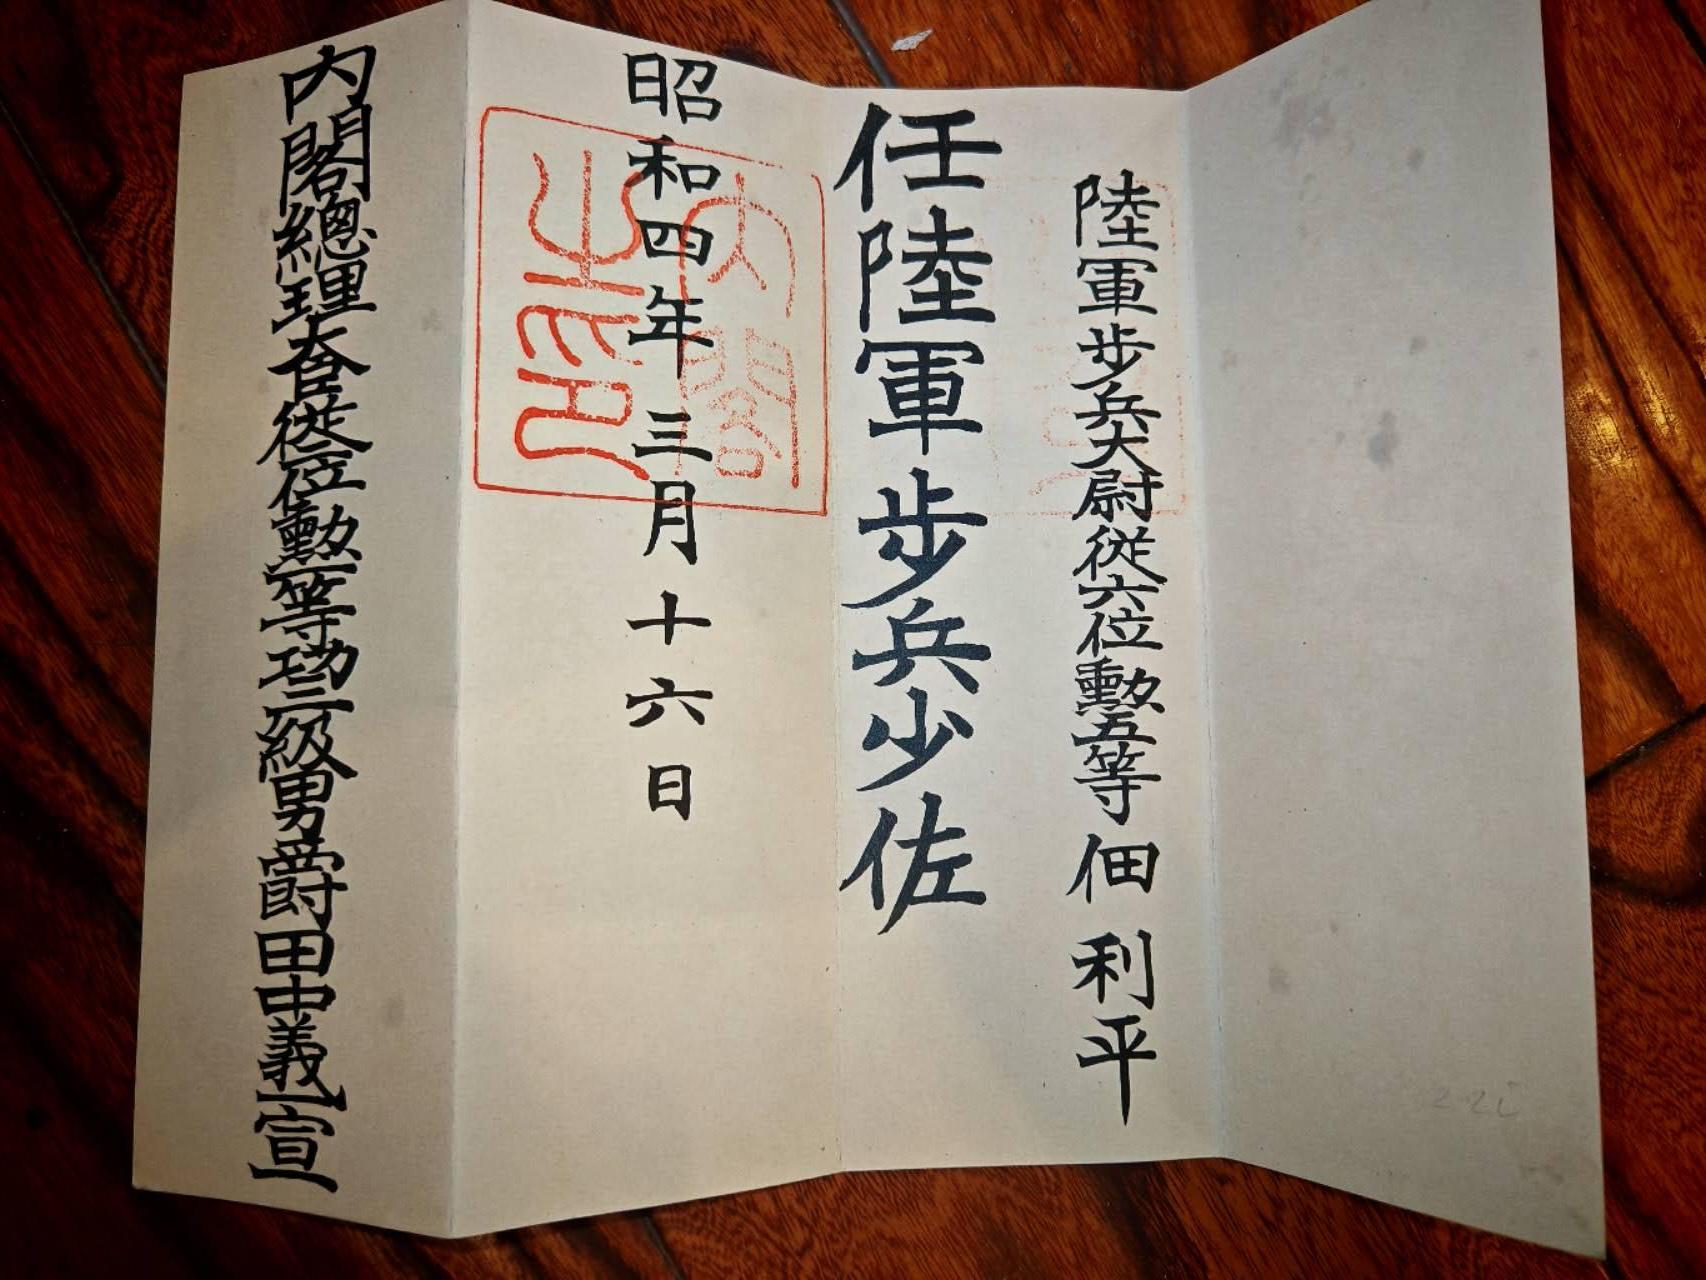 陸軍歩兵大尉従六位勲五等佃利平
任陸軍歩兵少佐
昭和四年三月十六日
内閣之印
内閣總理大臣従二位勲一等功三級男爵田中義一宣